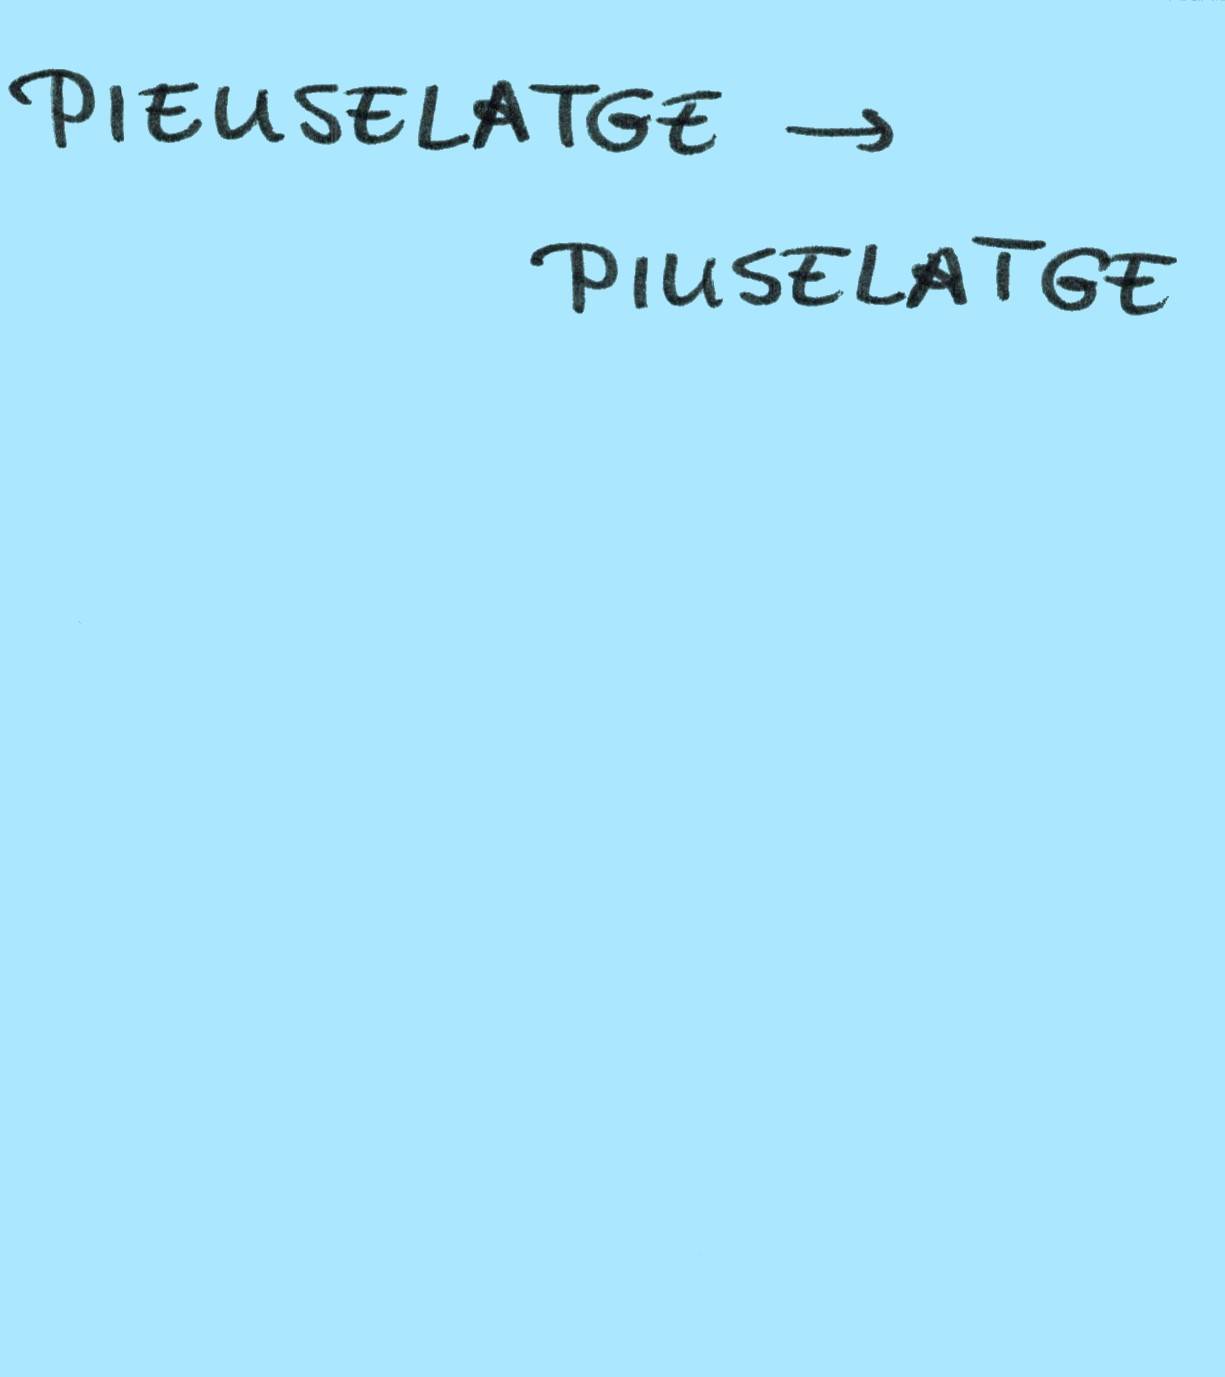 PIEUSELATGE →
PIUSELATGE